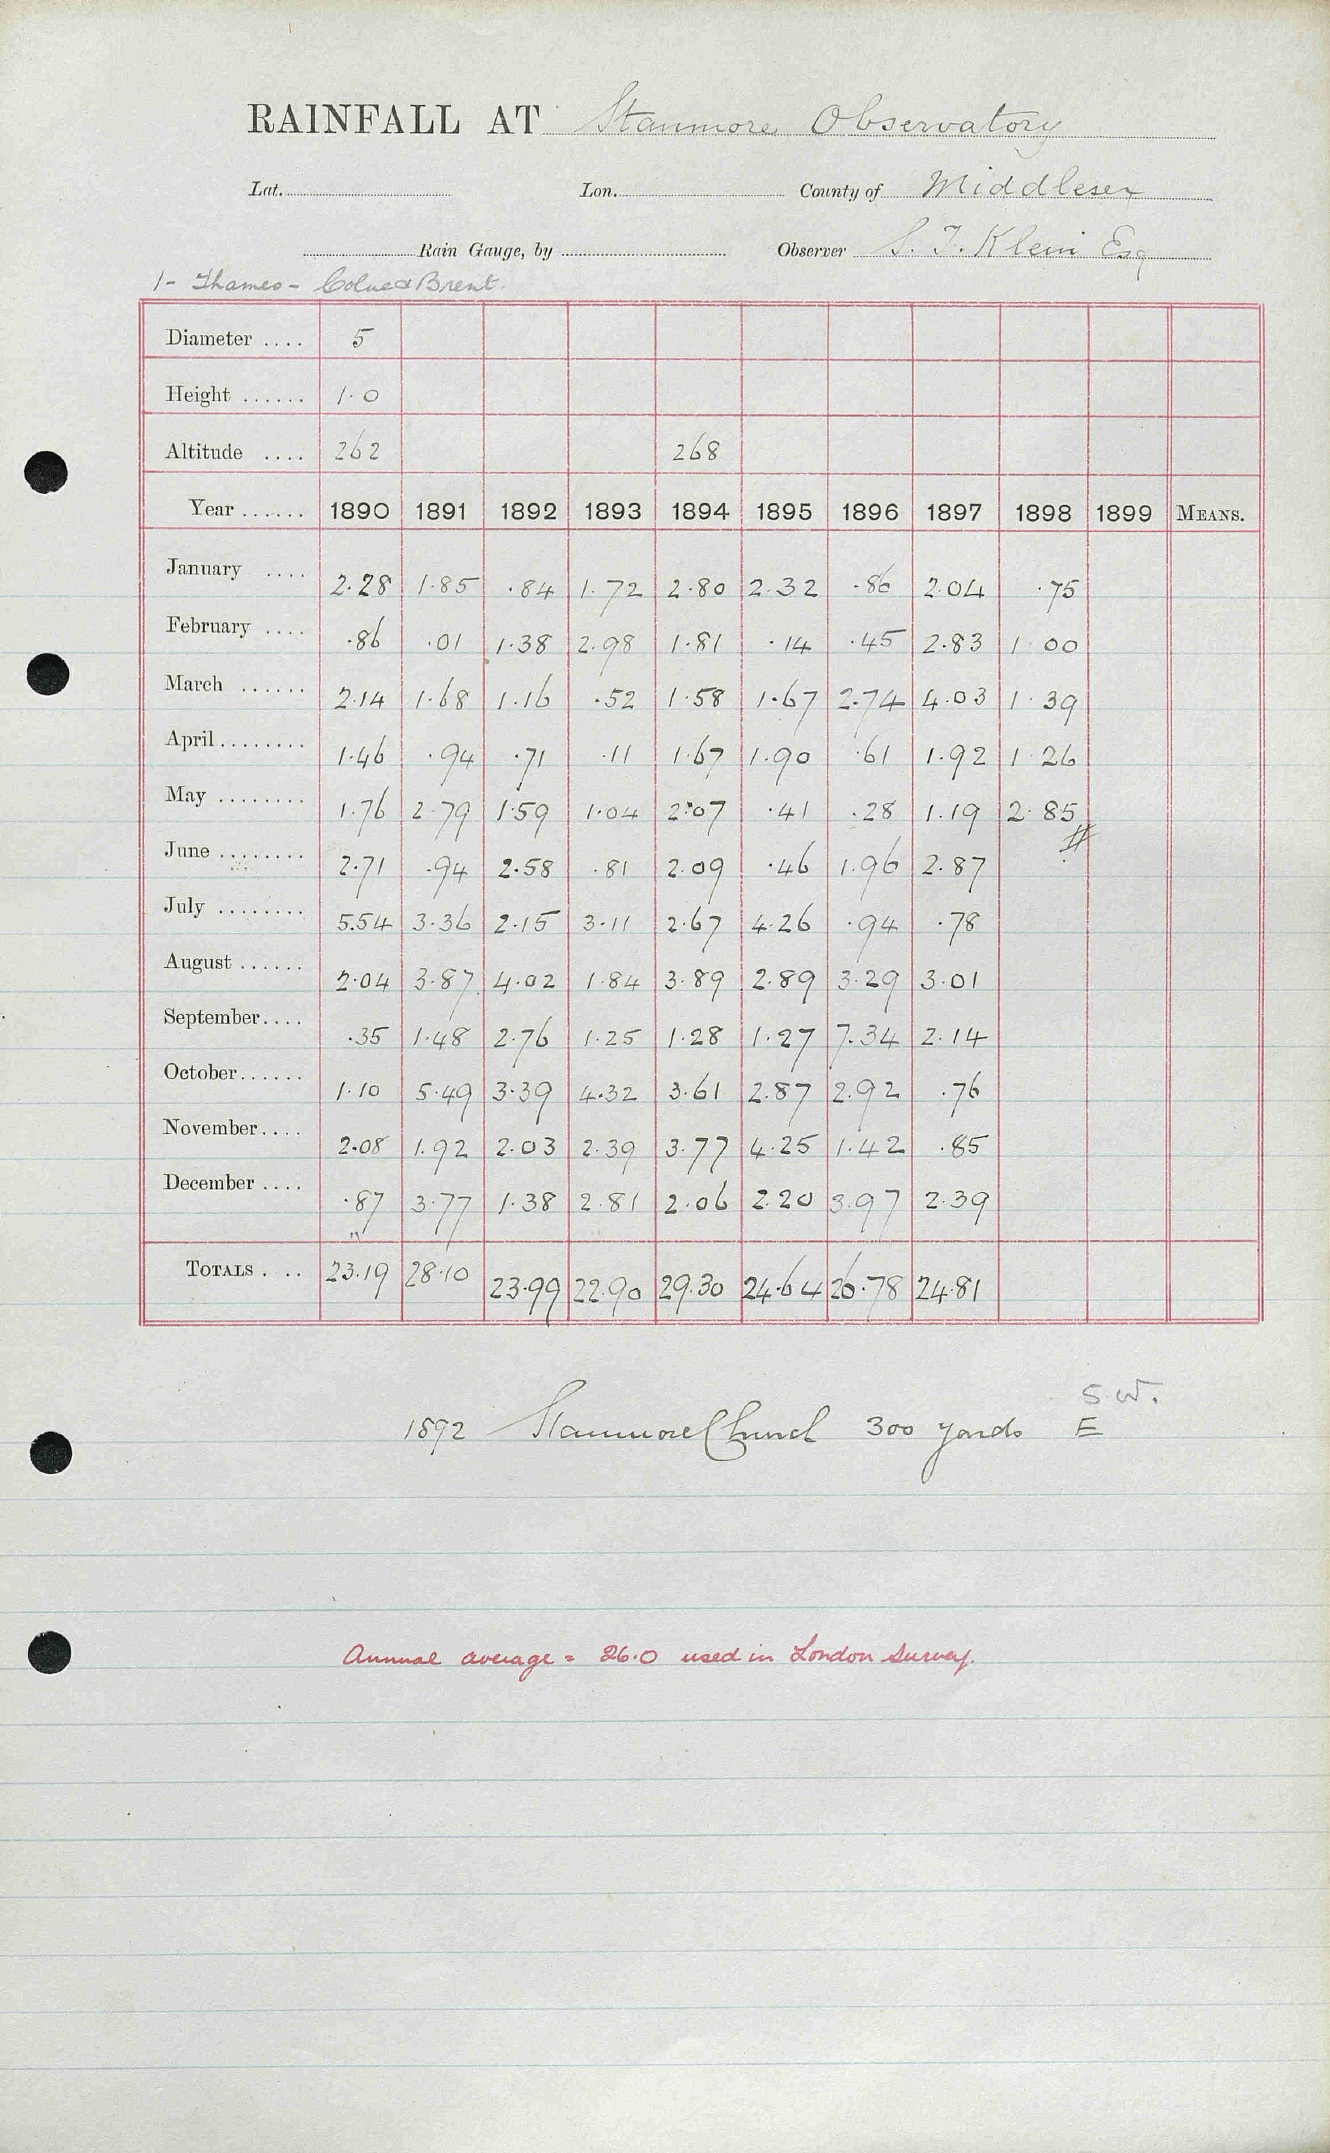 RAINFALL AT Stanmore Observatory
Lat. Lon. County of Middlesex
Rain Gauge, by Observer S. T. Klein Esq
1 - Thames - Colne & Brent.
Diameter .... 5
Height ...... 1.0
Altitude .... 262 268
Year ...... 1890 1891 1892 1893 1894 1895 1896 1897 1898 1899 MEANS.
January .... 2.28 1.85 .84 1.72 2.80 2.32 .86 2.04 .75
February .... .86 .01 1.38 2.98 1.81 .14 .45 2.83 1.00
March ...... 2.14 1.68 1.16 .52 1.58 1.67 2.74 4.03 1.39
April ........ 1.46 .94 .71 .11 1.67 1.90 .61 1.92 1.26
May ........ 1.76 2.79 1.59 1.04 2.07 .41 .28 1.19 2.85
June ........ 2.71 .94 2.58 .81 2.09 .46 1.96 2.87
July ........ 5.54 3.36 2.15 3.11 2.67 4.26 .94 .78
August ...... 2.04 3.87 4.02 1.84 3.89 2.89 3.29 3.01
September.... .35 1.48 2.76 1.25 1.28 1.27 7.34 2.14
October...... 1.10 5.49 3.39 4.32 3.61 2.87 2.92 .76
November.... 2.08 1.92 2.03 2.39 3.77 4.25 1.42 .85
December .... .87 3.77 1.38 2.81 2.06 2.20 3.97 2.39
TOTALS . ... 23.19 28.10 23.99 22.90 29.30 24.64 26.78 24.81
S.W.
1892 Stanmore Church 300 yards E
Annual average = 26.0 used in London Survey.